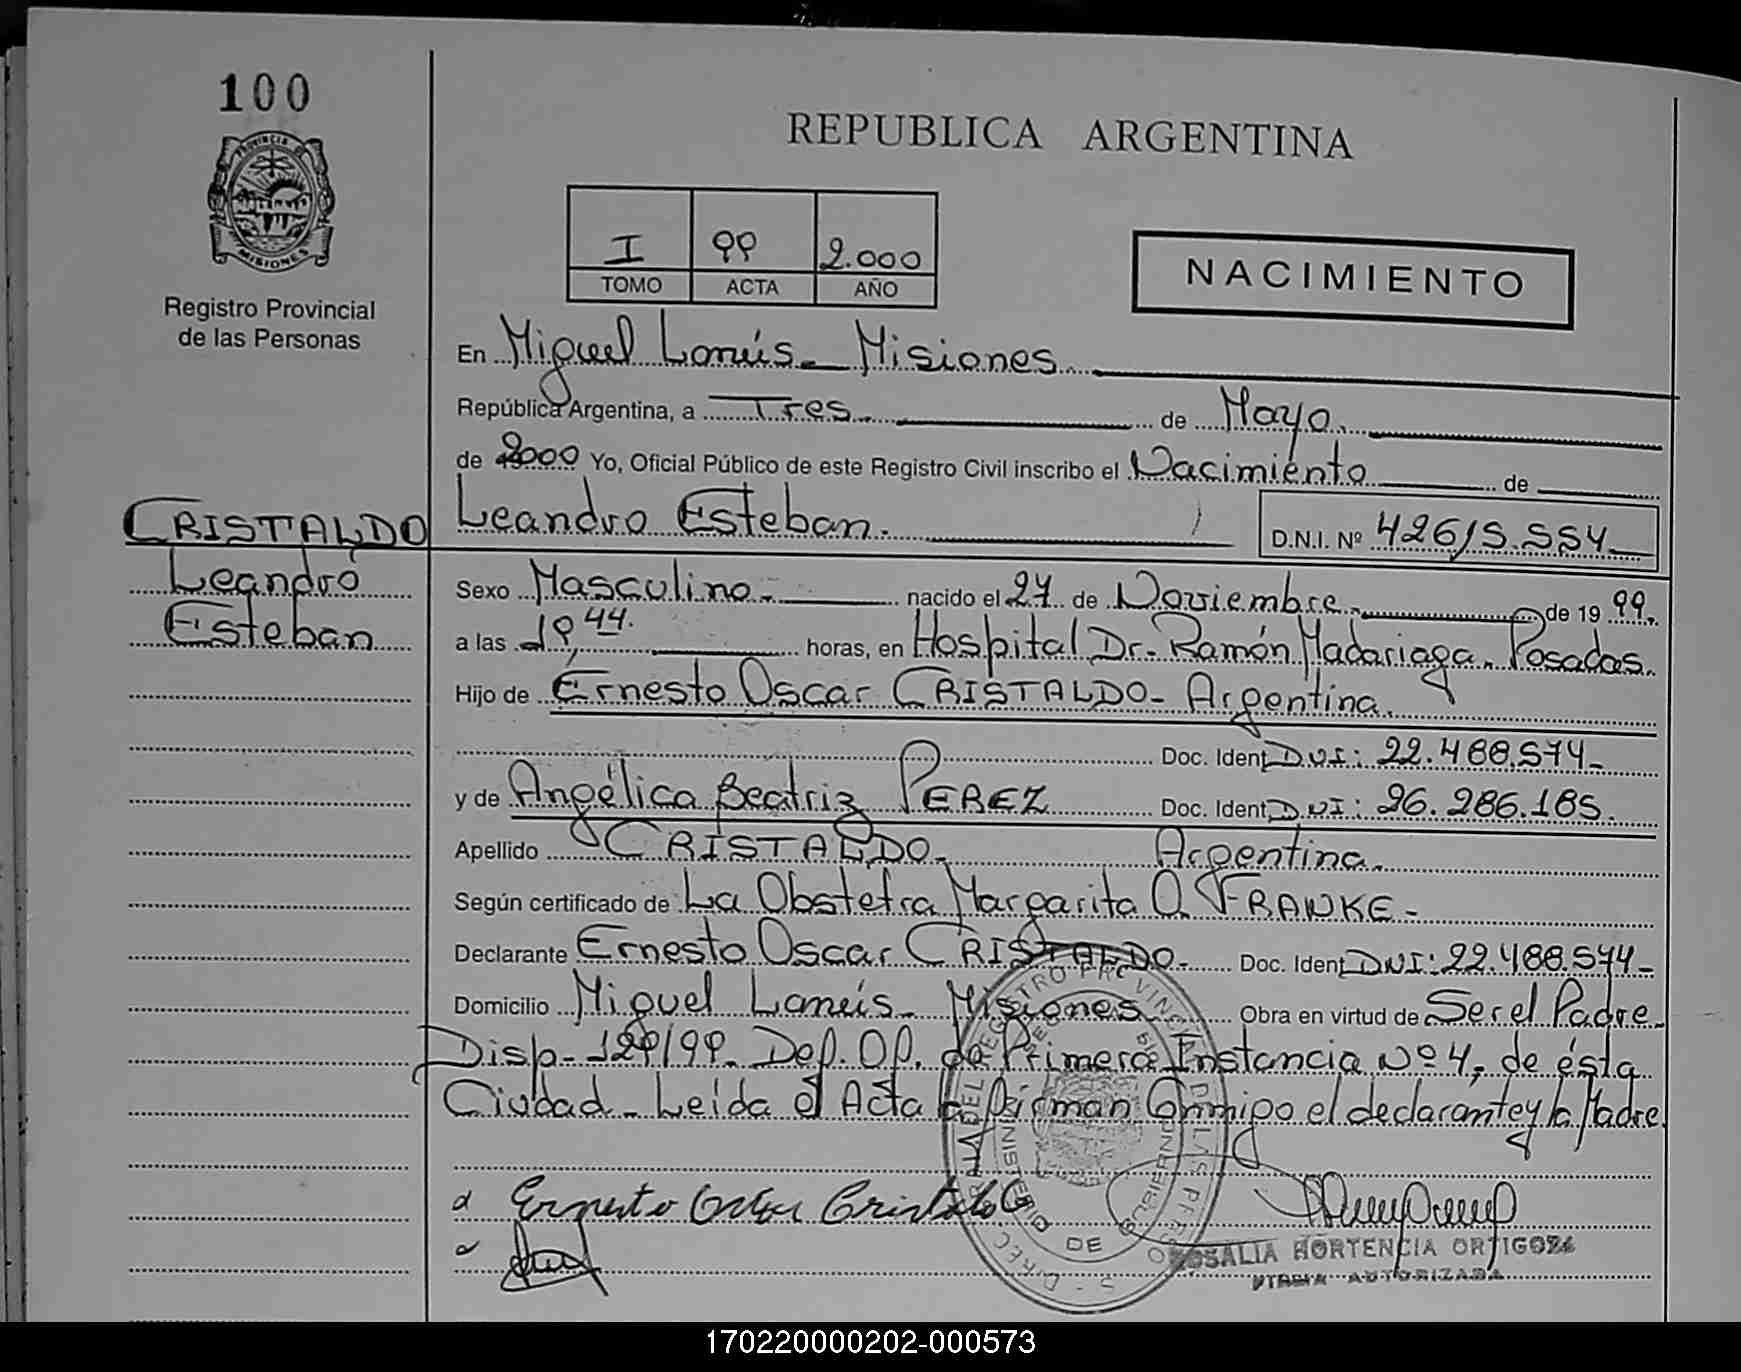 100
PROVINCIA DE
MISIONES
Registro Provincial
de las Personas
REPUBLICA ARGENTINA
I 99 2.000
TOMO ACTA AÑO
NACIMIENTO
En Miguel Lanús - Misiones
República Argentina, a Tres de Mayo
de 2000 Yo, Oficial Público de este Registro Civil inscribo el Nacimiento de
Leandro Esteban. D.N.I. Nº 42615.554
CRISTALDO
Leandro
Esteban
Sexo Masculino nacido el 27 de Noviembre de 19 99.
a las 19,44. horas, en Hospital Dr. Ramón Madariaga. Posadas.
Hijo de Ernesto Oscar CRISTALDO - Argentina.
Doc. Ident DNI: 22.488.574-
y de Angélica Beatriz PEREZ Doc. Ident DNI: 26.286.185.
Apellido CRISTALDO. Argentina.
Según certificado de La Obstetra Margarita O. FRANKE -
Declarante Ernesto Oscar CRISTALDO - Doc. Ident DNI: 22.488.574-
Domicilio Miguel Lanús - Misiones Obra en virtud de Ser el Padre
Disp - 129/99. Def. Of. de Primera Instancia Nº 4, de ésta
Ciudad - Leída el Acta la firman Conmigo el declarante y la Madre.
Ernesto Oscar Cristaldo
ROSALIA HORTENCIA ORTIGOZA
FIRMA AUTORIZADA
170220000202-000573